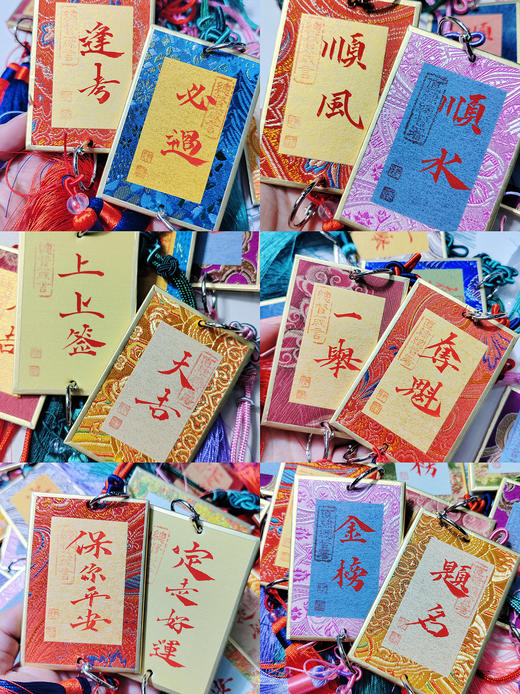 逢考
必過
順風
順水
上上签
大吉
一舉
奪魁
保你平安
定走好運
金榜
題名